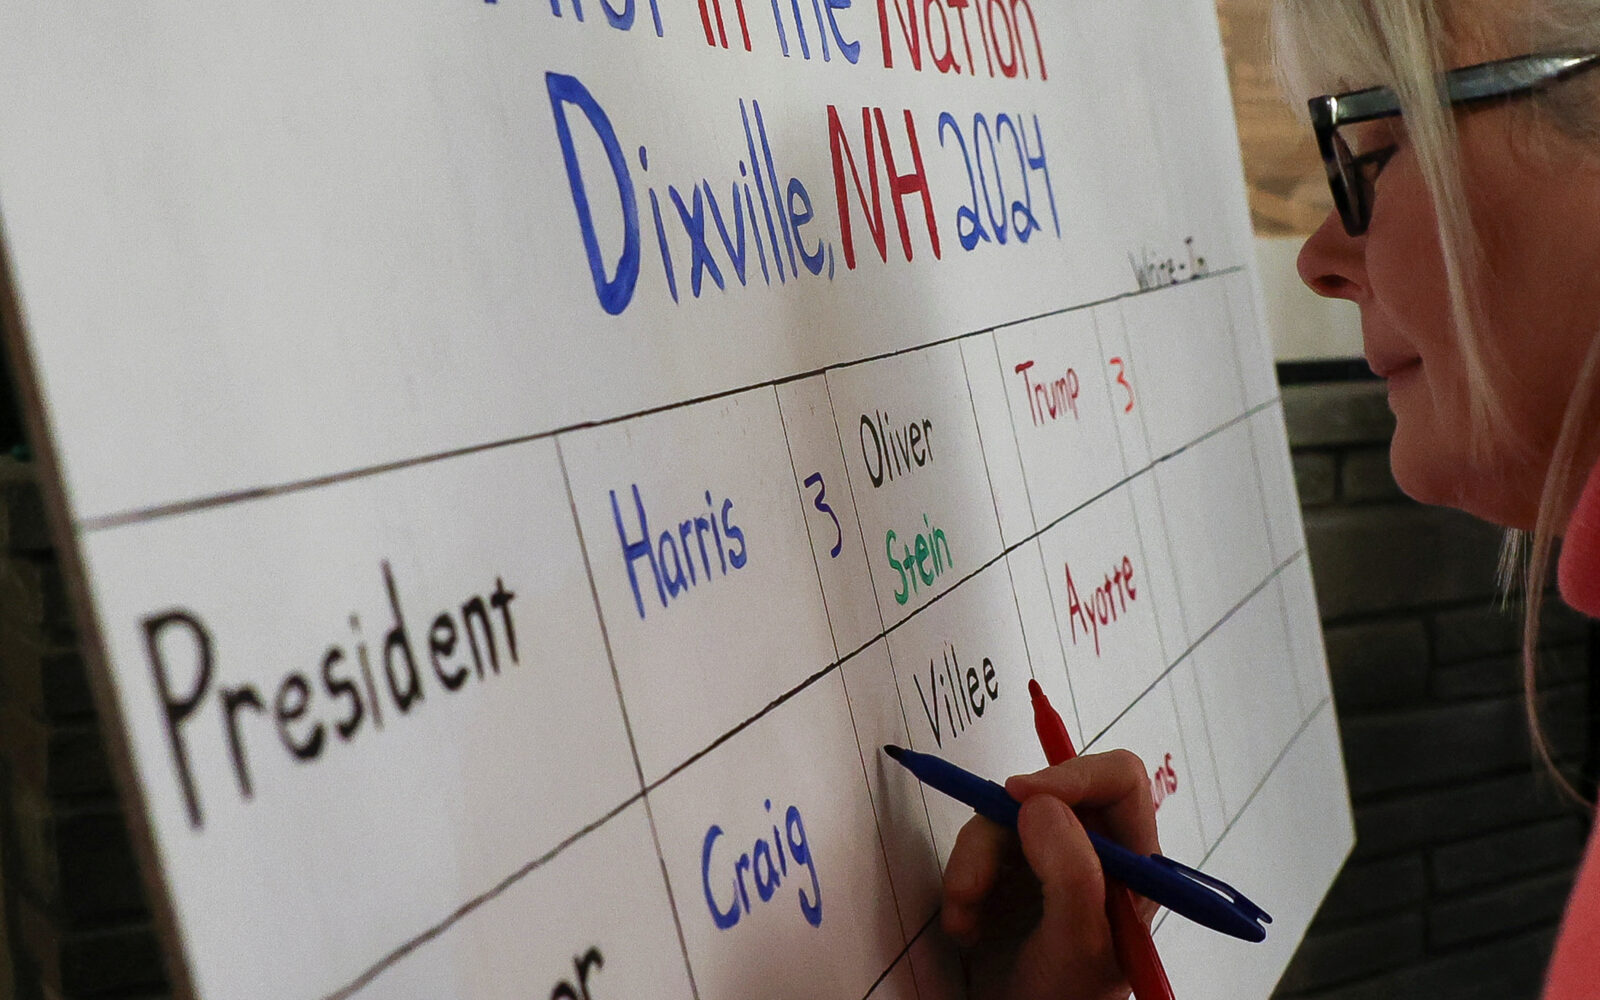 First in the Nation
Dixville, NH 2024
Write-In
President Harris 3 Oliver Trump 3
Stein
Craig Villee Ayotte